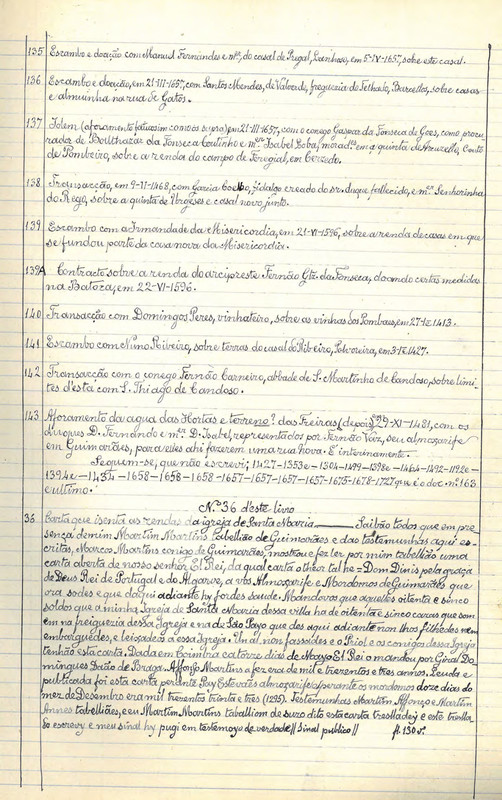 135 Escambo e doação com Manuel Fernandes e mᵉʳ, do casal de Pregal, Lanhoso, em 5-IV-1657, sobre este casal.
136 Escambo e doação, em 21-III-1657, com Santos Mendes, de Valverde, freguezia do Telhado, Barcellos, sobre casas
e almuinha na rua de Gatos.
137 Idem (aforamento fatiosim como os supra) em 21-III-1657, com o conego Gaspar da Fonseca de Goes, como procu-
rador de Balthazar da Fonseca Coutinho e mᵉʳ Isabel Loba, moradᵉˢ em a quinta de Arrezello, Couto
de Pombeiro, sobre a renda do campo de Feregial, em Cerzedo.
138 Transacção, em 9-VI-1468, com Garcia Coelho, fidalgo creado do sr. duque fallecido, e mᵉʳ Senhorinha
do Rego, sobre a quinta de Urgeses e casal novo junto.
139 Escambo com a Irmandade da Misericordia, em 21-VI-1596, sobre a renda de casas em que
se fundou parte da casa nova da Misericordia.
139A Contracto sobre a renda do arcipreste Fernão Glz. da Fonseca, doando certas medidas
na Batoca, em 22-VI-1596.
140 Transacção com Domingos Peres, vinhateiro, sobre as vinhas dos Pombaes, em 27-IX-1413.
141 Escambo com Nuno Ribeiro, sobre terras do casal do Ribeiro, Polvoreira, em 3-IX-1427.
142 Transacção com o conego Fernão Carneiro, abbade de S. Martinho de Candoso, sobre limi-
tes d'esta com S. Thiago de Candoso.
143 Aforamento da agua das Hortas e terreno? das Freiras (depois) 29-XI-1481, com os
Duques D. Fernando e mᵉʳ D. Isabel, representados por Fernão Vaz, seu almoxarife
em Guimarães, para elles ahi fazerem uma rua nova. É interinamente.
Seguem-se, que não escrevi; 1427-1353 e-1304-1499-1398 e-1464-1492-1192 e-
1394 e-1434-1658-1658-1658-1657-1657-1657-1657-1675-1678-1727 que é o doc. nº 163
e ultimo.
Nº 36 d'este livro
36 Carta que isenta as rendas da igreja de Santa Maria ——— Saibão todos que em pre-
sença de mim Martim Martins tabellião de Guimarães e das testemunhas aqui es-
critas, Marcos Martins conigo de Guimarães, mostrou e fez ler por mim tabellião uma
carta aberta de nosso senhor El Rei, da qual carta o theor tal he = Dom Dinis pela graça
de Deus Rei de Portugal e do Algarve, a vós Almoxarife e Mordomos de Guimarães que
ora sodes e que daqui adiante hy fordes saude. Mandovos que aquelles oitenta e sinco
soldos que a minha Igreja de Santa Maria dessa villa ha de oitenta e sinco casas que som
em na freiguezia dessa Igreja e na de São Payo que des aqui adiante non lhos filhedes nem
embarguedes, e leixedes a essa Igreja. Un al non fassides e o Priol e os conigos dessa Igreja
tenhão esta carta. Dada em Coimbra catorze dias de Mayo El Rei o mandou por Giral Do-
mingues Daão de Braga. Affonso Martins a fez era de mil e trezentos e tres annos. Leuda e
publicada foi esta carta perante Pay Esteves almoxarife e perante os mordomos doze dias do
mez de Desembro era mil trezentos trinta e três (1295). Testemunhas Martim Affonso e Martim
Annes tabelliães, e eu Martim Martins taballiom de suzo dito esta carta tresladey e este tresla-
do escrevy e meu sinal hy pugi em testemoyo de verdade // Sinal publico // fl. 130 vº.